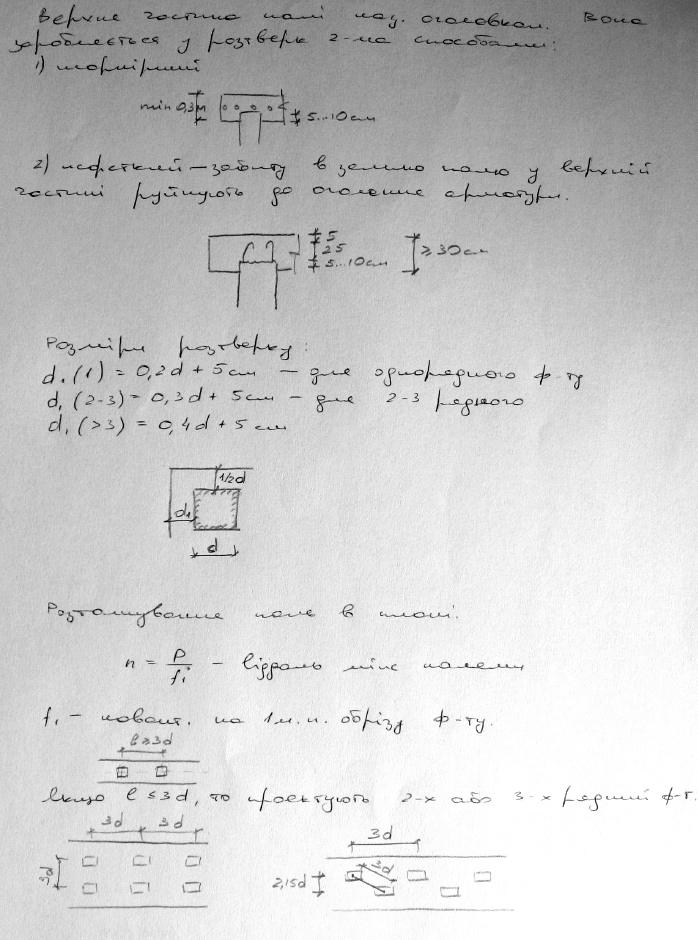 Верхня частина палі наз. оголовком. Вона
заробляється у розтверк 2-ма способами:
1) шарнірний
min 0,3м
5...10см
2) жорсткий – забиту в землю палю у верхній
частині руйнують до оголення арматури.
5
25
5...10см
≥30см
Розміри розтверку:
d₁(1) = 0,2d + 5см – для однорядного ф-ту
d₁(2-3) = 0,3d + 5см – для 2-3 рядного
d₁(>3) = 0,4d + 5см
1/2d
d₁
d
Розташування паль в плані.
n = P/f₁ – відстань між палями
f₁ – навант. на 1м.п. обрізу ф-ту.
l≥3d
Якщо l ≤ 3d, то проектують 2-х або 3-х рядний ф-т.
3d 3d
3d
3d
3d
2,15d